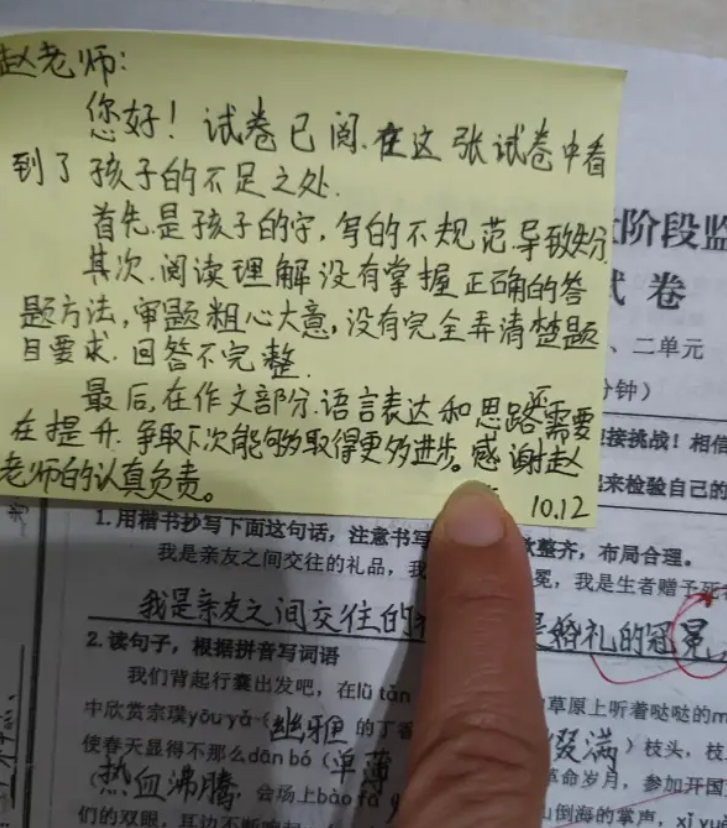 赵老师:
您好! 试卷已阅.在这张试卷中看
到了孩子的不足之处.
首先.是孩子的字,写的不规范.导致失分
其次.阅读理解没有掌握正确的答
题方法,审题粗心大意,没有完全弄清楚题
目要求.回答不完整.
最后,在作文部分.语言表达和思路还需要
在提升.争取下次能够取得更多进步。感谢赵
老师的认真负责。
10.12
阶段监
试卷
、二单元
分钟)
迎接挑战! 相信
起来检验自己的
1.用楷书抄写下面这句话,注意书写 整齐,布局合理。
我是亲友之间交往的礼品,我 冕,我是生者赠予死
我是亲友之间交往的 是婚礼的冠冕,
2.读句子,根据拼音写词语
我们背起行囊出发吧,在lǜ tǎn 草原上听着哒哒的m
中欣赏宗璞yōu yǎ(幽雅 的丁香 缀满)枝头,枝
使春天显得不那么dān bó(单薄 革命岁月,参加开国
(热血沸腾,会场上bào fā 山倒海的掌声,xǐ yuè
们的双眼,耳边不断响起